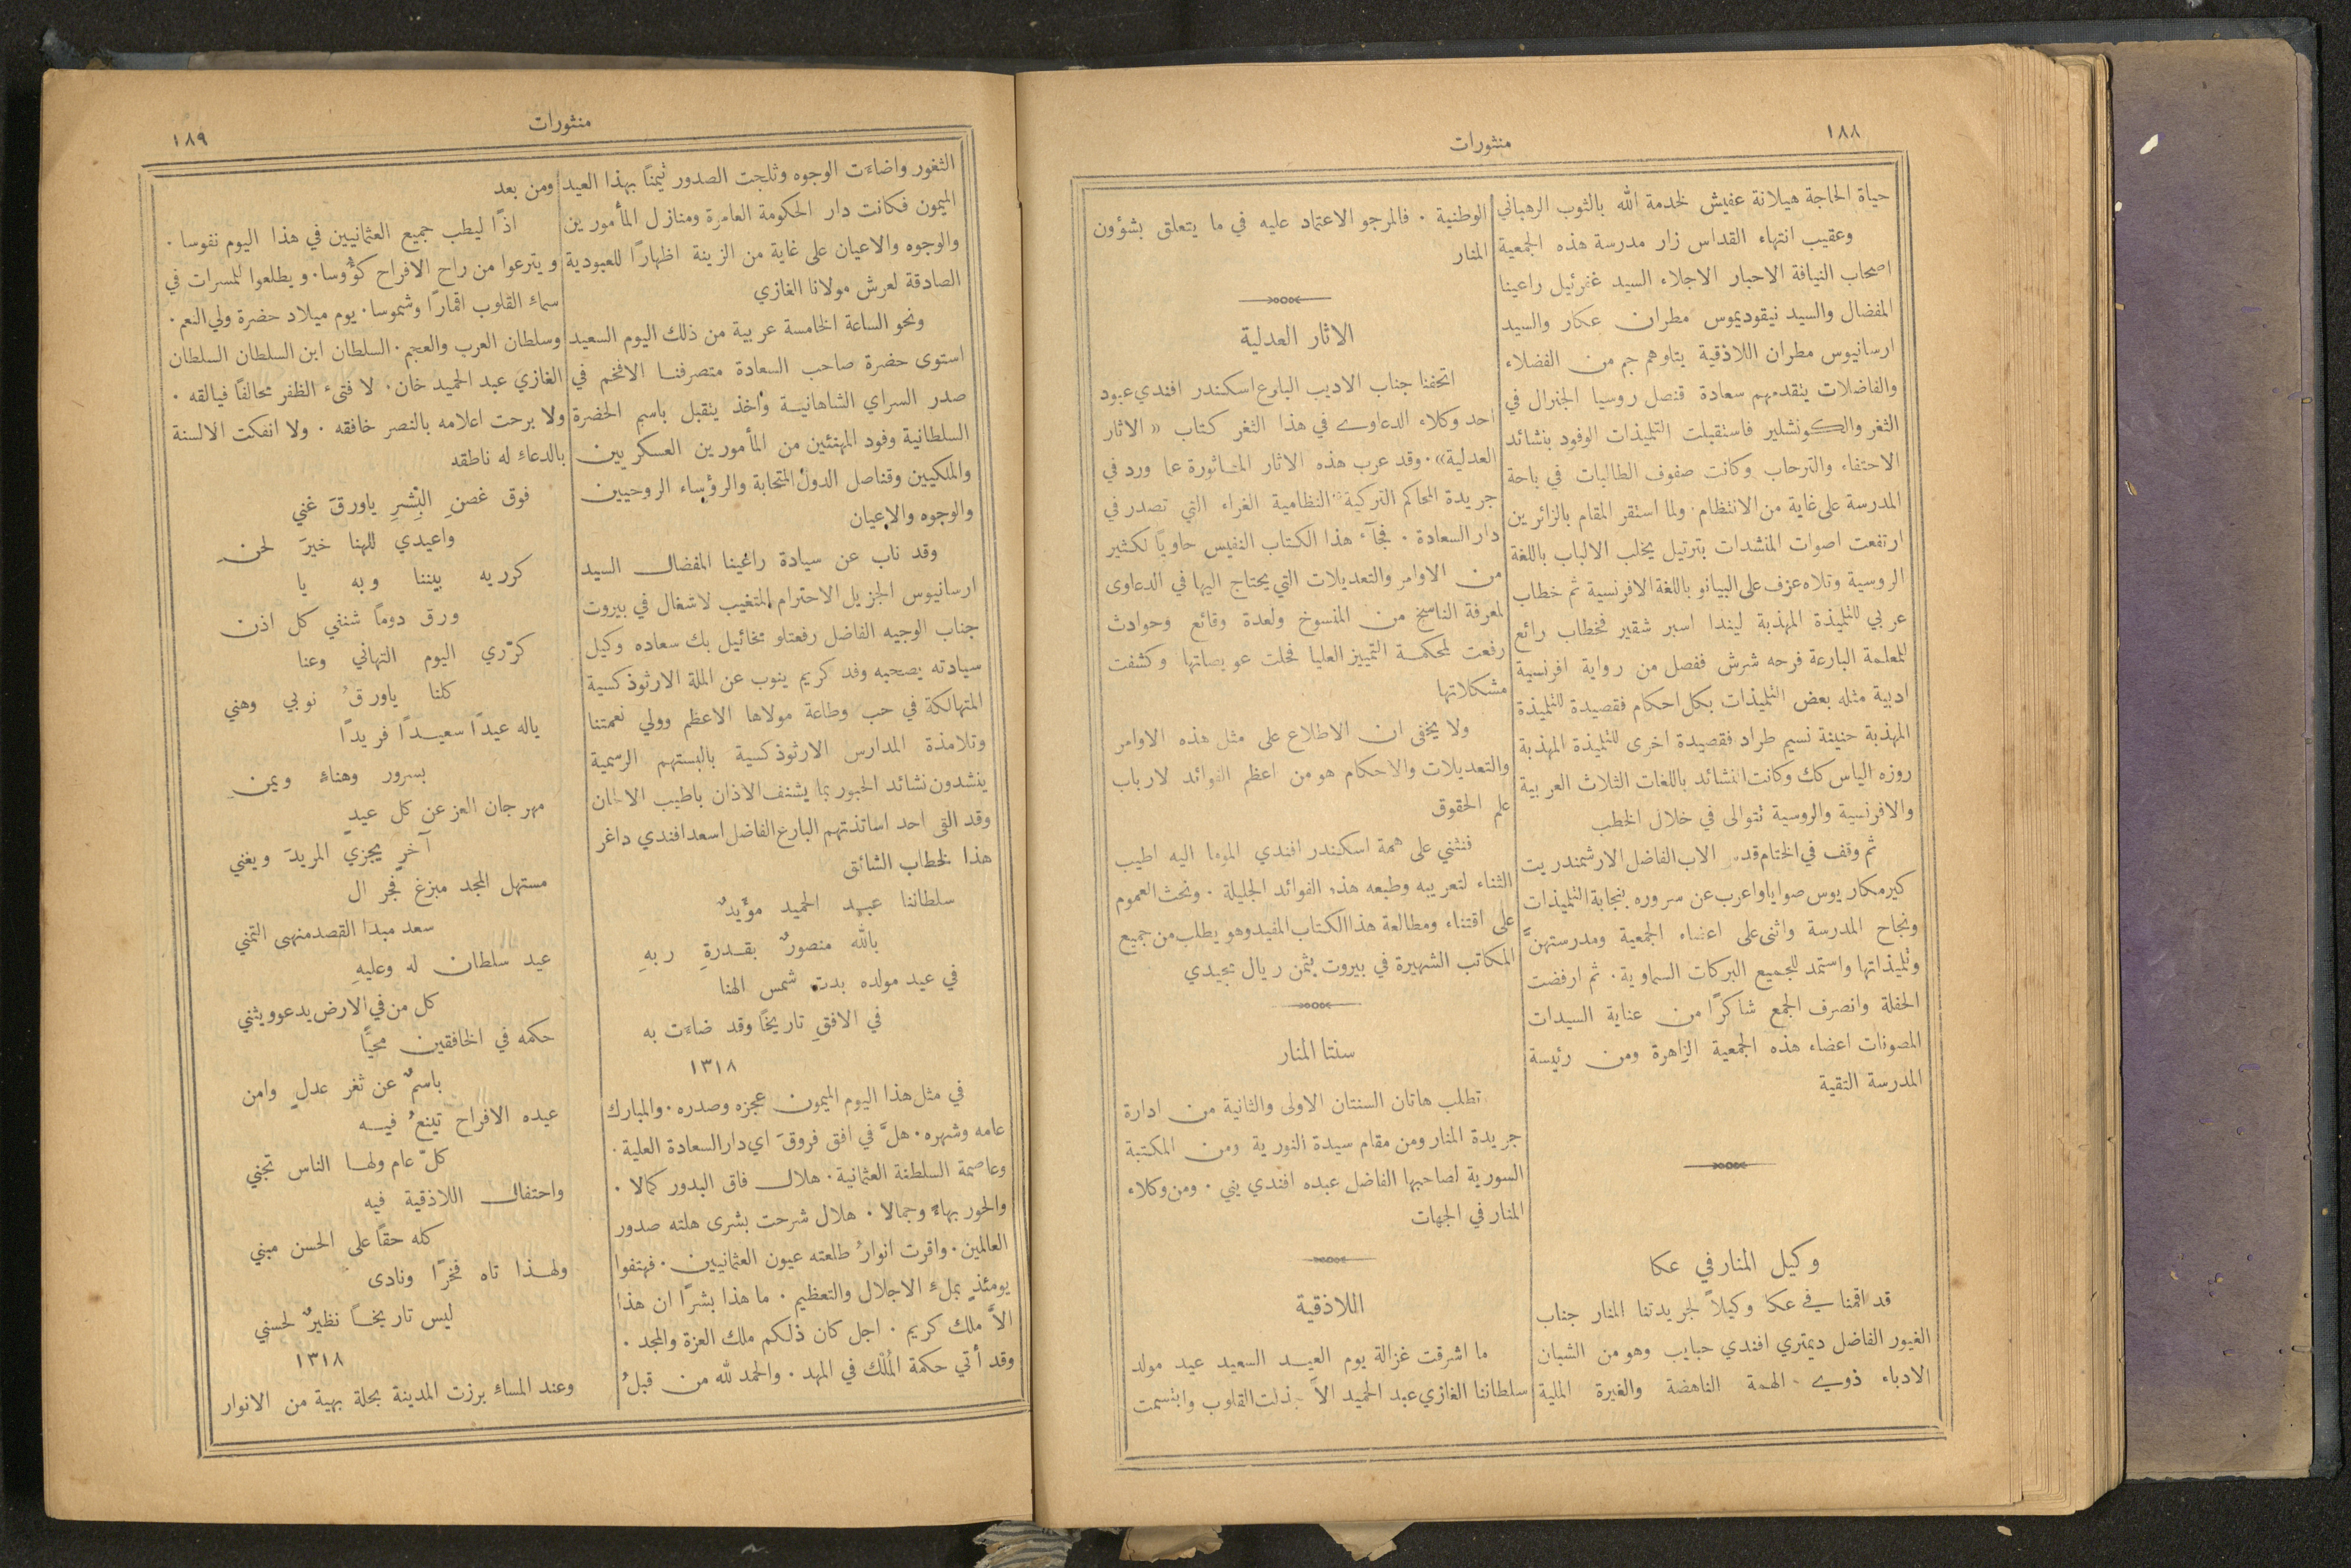 ١٨٨
منثورات
حياة الحاجة هيلانة عفيش لخدمة الله بالثوب الرهباني
وعقيب انتهاء القداس زار مدرسة هذه الجمعية
اصحاب النيافة الاحبار الاجلاء السيد غفرئيل راعينا
المفضال والسيد نيقوديموس مطران عكار والسيد
ارسانيوس مطران اللاذقية يتلوهم جم من الفضلاء
والفاضلات يتقدمهم سعادة قنصل روسيا الجنرال في
الثغر والكونشلير فاستقبلت التلميذات الوفود بنشائد
الاحتفاء والترحاب وكانت صفوف الطالبات في باحة
المدرسة على غاية من الانتظام. ولما استقر المقام بالزائرين
ارتفعت اصوات المنشدات بترتيل يخلب الالباب باللغة
الروسية وتلاه عزف على البيانو باللغة الافرنسية ثم خطاب
عربي للتلميذة المهذبة ليندا اسبر شقير فخطاب رائع
للمعلمة البارعة فرحه شرش ففصل من رواية افرنسية
ادبية مثله بعض التلميذات بكل احكام فقصيدة للتلميذة
المهذبة حنينة نسيم طراد فقصيدة اخرى للتلميذة المهذبة
روزه الياس كك وكانت النشائد باللغات الثلاث العربية
والافرنسية والروسية تتوالى في خلال الخطب
ثم وقف في الختام قدس الاب الفاضل الارشمندريت
كيرمكاريوس صوايا واعرب عن سروره بنجابة التلميذات
ونجاح المدرسة واثنى على اعضاء الجمعية ومدرستهنَّ
وتلميذاتها واستمد للجميع البركات السماوية. ثم ارفضت
الحفلة وانصرف الجمع شاكرًا من عناية السيدات
المصونات اعضاء هذه الجمعية الزاهرة ومن رئيسة
المدرسة التقية
وكيل المنار في عكا
قد اقمنا في عكا وكيلاً لجريدتنا المنار جناب
الغيور الفاضل ديمتري افندي حبايب وهو من الشبان
الادباء ذوي الهمة الناهضة والغيرة الملية
الوطنية . فالمرجو الاعتماد عليه في ما يتعلق بشؤون
المنار
الاثار العدلية
اتحفنا جناب الاديب البارع اسكندر افندي عبود
احد وكلاء الدعاوي في هذا الثغر كتاب « الاثار
العدلية». وقد عرب هذه الاثار المأثورة عما ورد في
جريدة المحاكم التركية النظامية الغراء التي تصدر في
دار السعادة . فجآء هذا الكتاب النفيس حاويًا لكثير
من الاوامر والتعديلات التي يحتاج اليها في الدعاوى
لمعرفة الناسخ من المنسوخ ولعدة وقائع وحوادث
رفعت لمحكمة التمييز العليا فحلت عويصاتها وكشفت
مشكلاتها
ولا يخفى ان الاطلاع على مثل هذه الاوامر
والتعديلات والاحكام هو من اعظم الفوائد لارباب
علم الحقوق
فنثني على همة اسكندر افندي الموما اليه اطيب
الثناء لتعريبه وطبعه هذه الفوائد الجليلة . ونحث العموم
على اقتناء ومطالعة هذا الكتاب المفيد وهو يطلب من جميع
المكاتب الشهيرة في بيروت بثمن ريال مجيدي
سنتا المنار
تطلب هاتان السنتان الاولى والثانية من ادارة
جريدة المنار ومن مقام سيدة النورية ومن المكتبة
السورية لصاحبها الفاضل عبده افندي يني . ومن وكلاء
المنار في الجهات
اللاذقية
ما اشرقت غزالة يوم العيد السعيد عيد مولد
سلطاننا الغازي عبد الحميد الاَّ جذلت القلوب وابتسمت
منثورات
١٨٩
الثغور واضاءَت الوجوه وثلجت الصدور تيمنًا بهذا العيد
الميمون فكانت دار الحكومة العامرة ومنازل المأمورين
والوجوه والاعيان على غاية من الزينة اظهارًا للعبودية
الصادقة لعرش مولانا الغازي
ونحو الساعة الخامسة عربية من ذلك اليوم السعيد
استوى حضرة صاحب السعادة متصرفنا الافخم في
صدر السراي الشاهانية وأخذ يتقبل باسم الحضرة
السلطانية وفود المهنئين من المأمورين العسكريين
والملكيين وقناصل الدول المتحابة والرؤساء الروحيين
والوجوه والاعيان
وقد ناب عن سيادة راعينا المفضال السيد
ارسانيوس الجزيل الاحترام المتغيب لاشغال في بيروت
جناب الوجيه الفاضل رفعتلو مخائيل بك سعاده وكيل
سيادته يصحبه وفد كريم ينوب عن الملة الارثوذكسية
المتهالكة في حب وطاعة مولاها الاعظم وولي نعمتنا
وتلامذة المدارس الارثوذكسية بالبستهم الرسمية
ينشدون نشائد الحبور بما يشنف الاذان باطيب الالحان
وقد القى احد اساتذتهم البارع الفاضل اسعد افندي داغر
هذا الخطاب الشائق
سلطاننا عبد الحميد مؤيدٌ
بالله منصورٌ بقدرةِ ربهِ
في عيد مولده بدت شمس الهنا
في الافقِ تاريخًا وقد ضاءَت به
١٣١٨
في مثل هذا اليوم الميمون عجزه وصدره. والمبارك
عامه وشهره. هلَّ في افق فروقَ اي دار السعادة العلية.
وعاصمة السلطنة العثمانية. هلال فاق البدور كمالا .
والحور بهاءً وجمالا . هلال شرحت بشرى هلته صدور
العالمين. واقرت انوارُ طلعته عيون العثمانيين. فهتفوا
يومئذٍ بملءِ الاجلال والتعظيم . ما هذا بشرًا ان هذا
الاَّ ملك كريم . اجل كان ذلكم ملك العزة والمجد .
وقد أُتي حكمة المُلك في المهد . والحمد لله من قبلُ
ومن بعد
اذًا ليطب جميع العثمانيين في هذا اليوم نفوسا .
ويترعوا من راح الافراح كؤُوسا. ويطلعوا للمسرات في
سماء القلوب اقمارًا وشموسا. يوم ميلاد حضرة ولي النعم.
وسلطان العرب والعجم. السلطان ابن السلطان السلطان
الغازي عبد الحميد خان. لا فتىء الظفر محالفًا فيالقه .
ولا برحت اعلامه بالنصر خافقه . ولا انفكت الالسنة
بالدعاء له ناطقه
فوق غصنِ البِشرِ ياورقَ غني
واعيدي للهنا خيرَ لحن
كرريه بيننا وبه يا
ورق دومًا شنفي كل اذن
كرّري اليوم التهاني وعنا
كلنا ياورقُ نوبي وهني
ياله عيدًا سعيدًا فريدًا
بسرور وهناءٍ ويمنِ
مهرجان العز عن كل عيدٍ
آخرٍ يجزي المريدَ ويغني
مستهل المجد مبزغ فجر ال
سعد مبدا القصد منهى التمني
عيد سلطان له وعليهِ
كل من في الارض يدعو ويثني
حكمه في الخافقين محيًّا
باسمٌ عن ثغر عدلٍ وامن
عيده الافراح تينعُ فيه
كلّ عام ولها الناس تجني
واحتفال اللاذقية فيه
كله حقًا على الحسن مبني
ولهذا تاه فخرًا ونادى
ليس تاريخًا نظيرٌ لحسني
١٣١٨
وعند المساءِ برزت المدينة بحلة بهية من الانوار